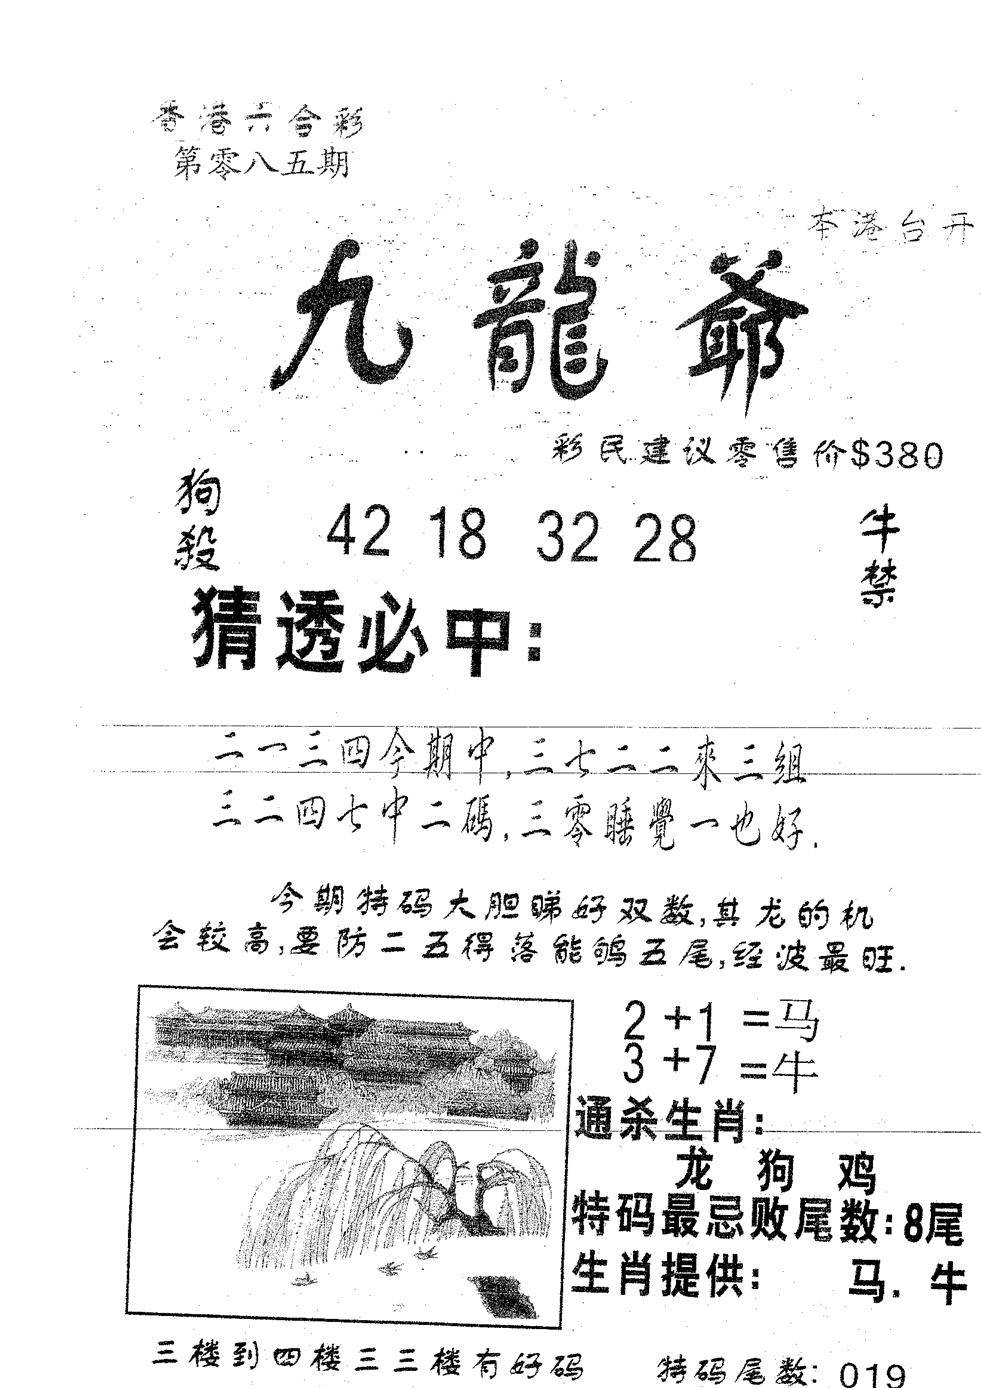 香港六合彩
第零八五期
本港台开
九龍爺
彩民建议零售价$380
狗殺
42 18 32 28
牛禁
猜透必中:
二一三四今期中,三七二二來三組
三二四七中二碼,三零睡覺一也好.
今期特码大胆睇好双数,其龙的机
会较高,要防二五得落能鸲五尾,经波最旺.
2+1=马
3+7=牛
通杀生肖:
龙 狗 鸡
特码最忌败尾数:8尾
生肖提供: 马. 牛
三楼到四楼三三楼有好码 特码尾数: 019